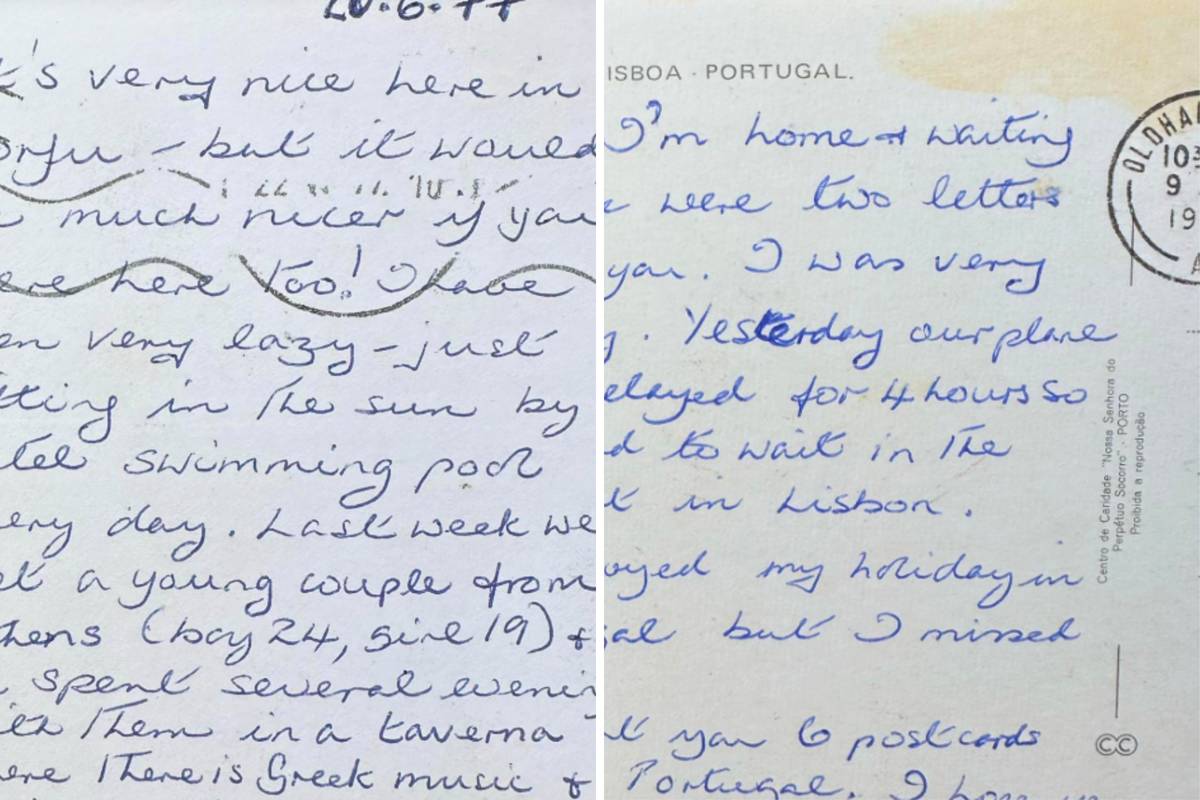 20.6.77
t's very nice here in
orfu - but it would
much nicer if you
ere here too! I have
en very lazy - just
tting in the sun by
tel swimming pool
ery day. Last week we
et a young couple from
thens (boy 24, girl 19) &
spent several evenin
ith them in a taverna
ere there is Greek music &
ISBOA · PORTUGAL.
I'm home & waiting
e were two letters
you. I was very
g. Yesterday our plane
elayed for 4 hours so
d to wait in the
t in Lisbon.
oyed my holiday in
gal but I missed
nt you 6 postcards
Portugal. I hope
OLDHA
10
9
19
A
Centro de Caridade "Nossa Senhora do
Perpétuo Socorro" - PORTO
Proibida a reprodução
CC